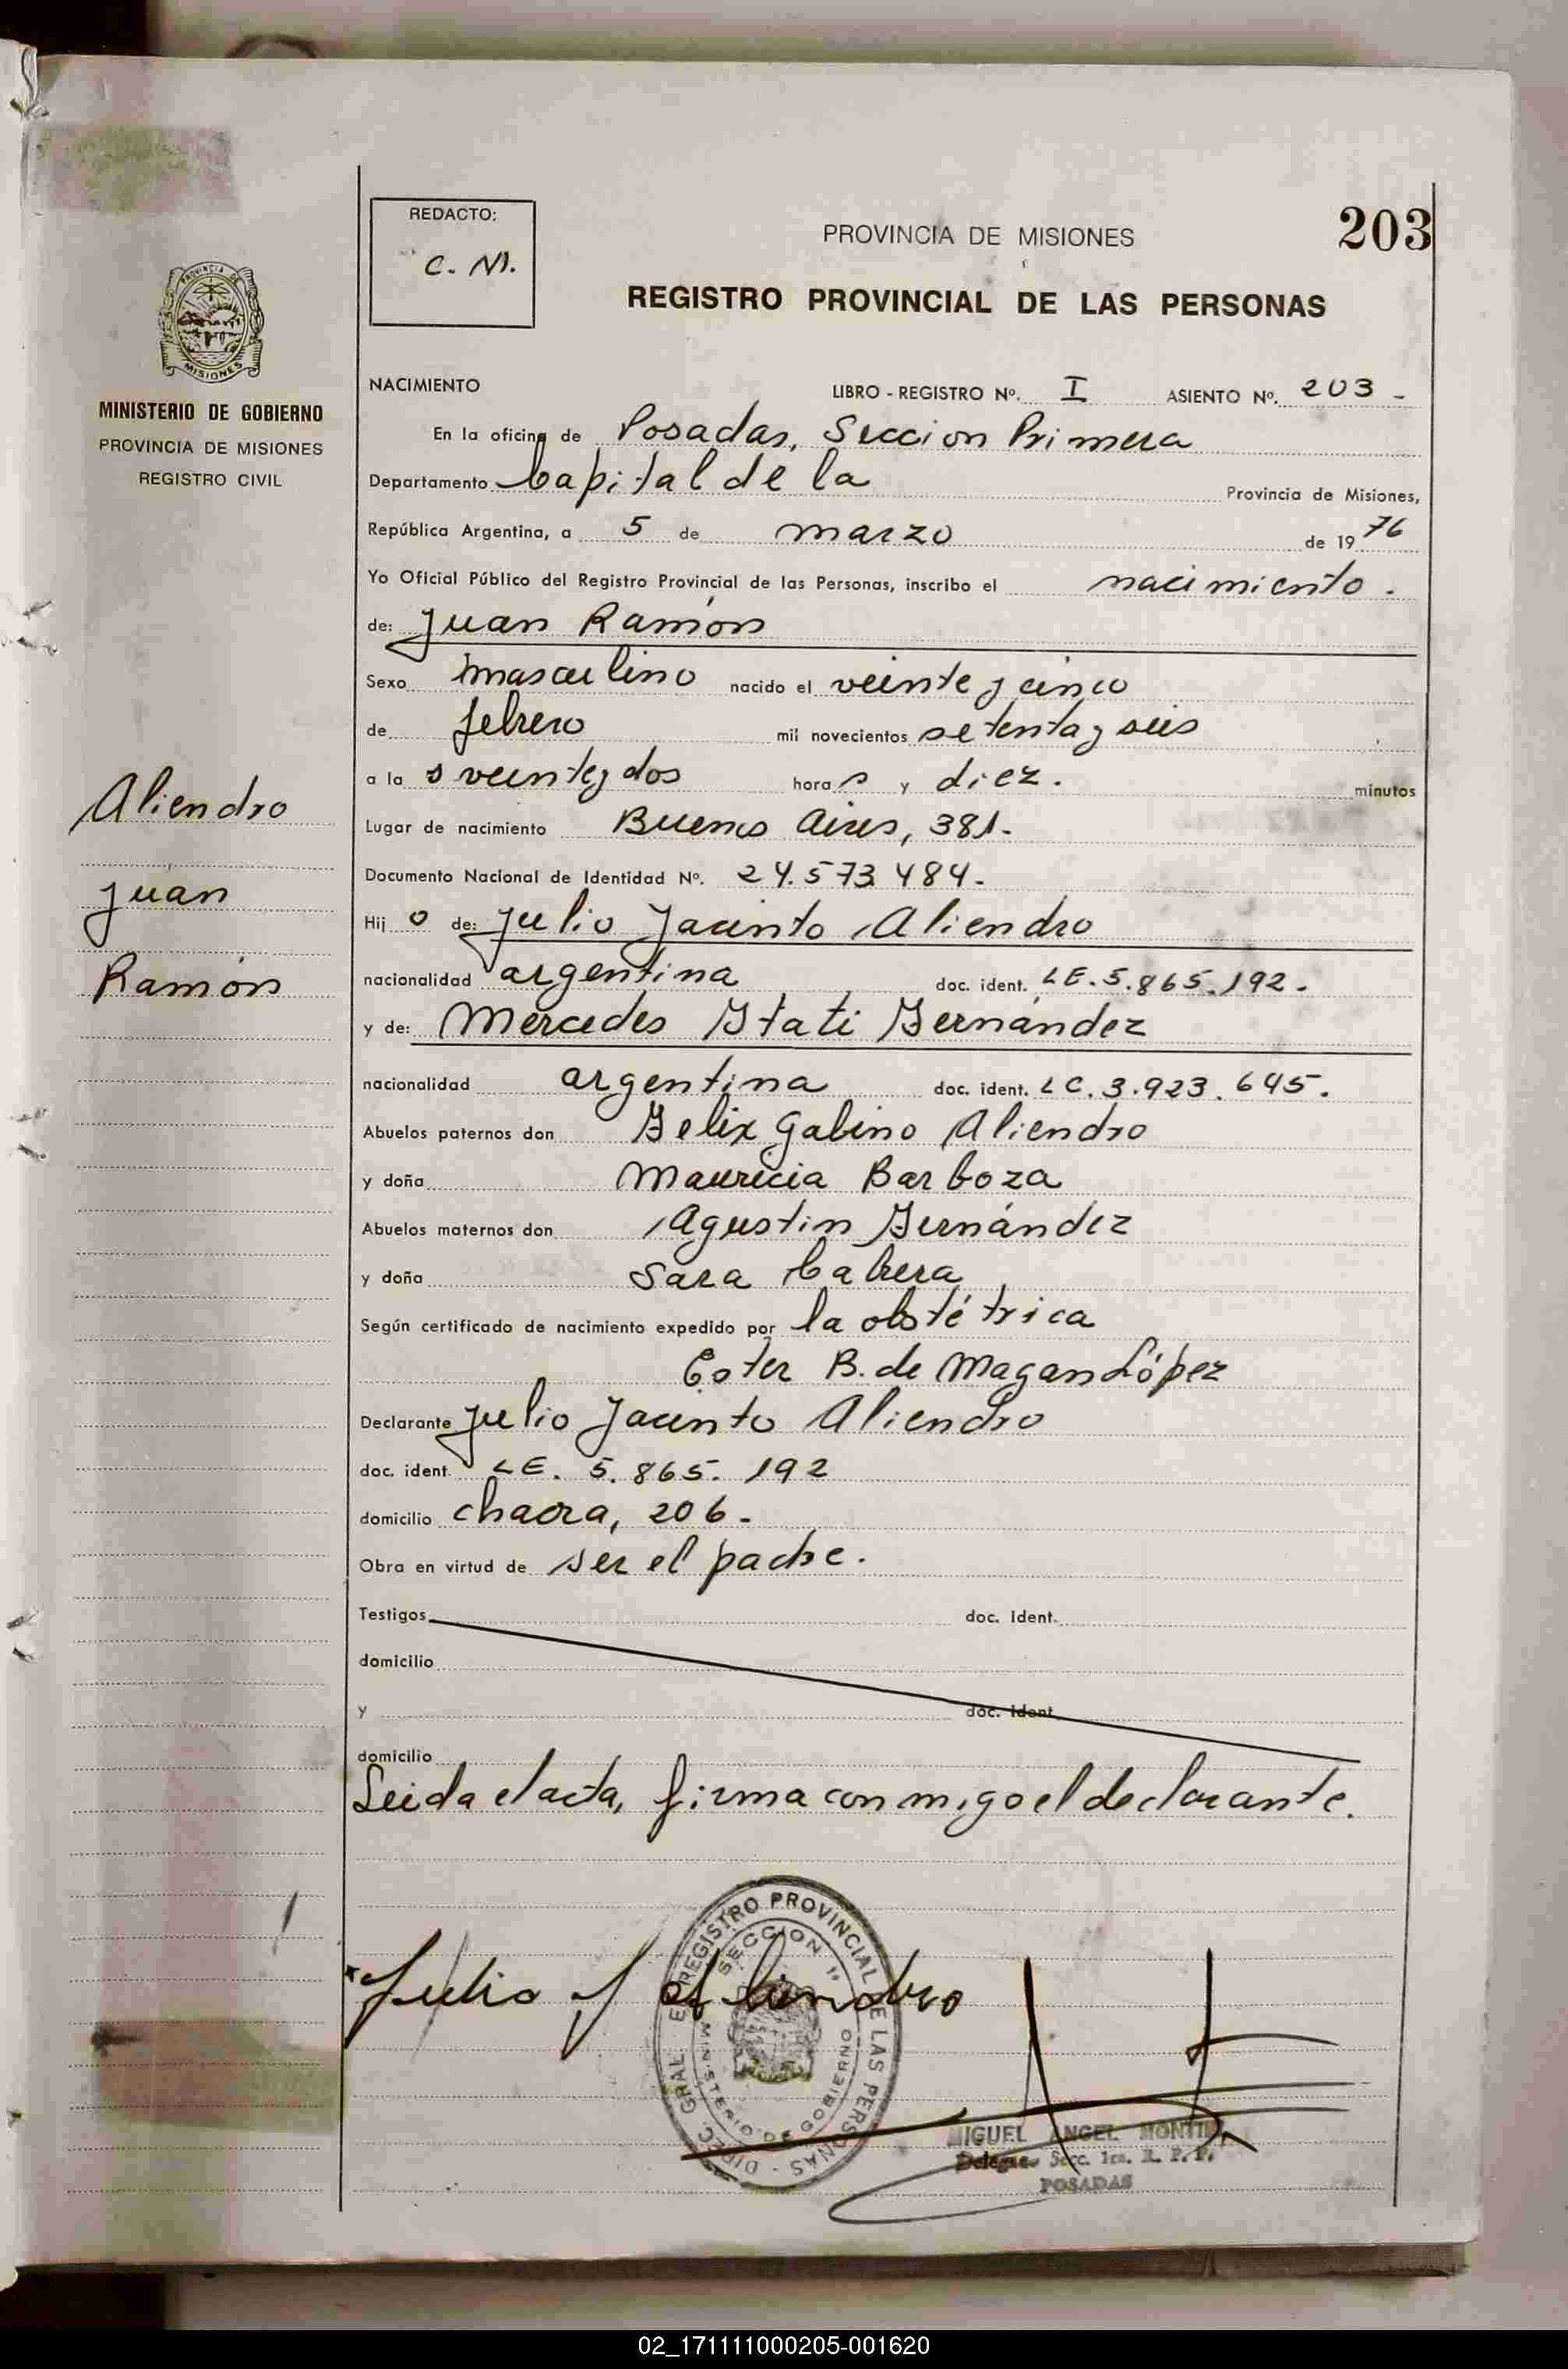 203
REDACTO:
C. M.
PROVINCIA DE MISIONES
REGISTRO PROVINCIAL DE LAS PERSONAS
PROVINCIA DE MISIONES
MINISTERIO DE GOBIERNO
PROVINCIA DE MISIONES
REGISTRO CIVIL
Aliendro
Juan
Ramón
NACIMIENTO LIBRO - REGISTRO Nº. I ASIENTO Nº. 203 -
En la oficina de Posadas, Seccion Primera
Departamento Capital de la Provincia de Misiones,
República Argentina, a 5 de marzo de 19 76
Yo Oficial Público del Registro Provincial de las Personas, inscribo el nacimiento.
de: Juan Ramón
Sexo masculino nacido el veinte y cinco
de febrero mil novecientos setenta y seis
a la s veinte y dos hora s y diez. minutos
Lugar de nacimiento Buenos Aires, 381.
Documento Nacional de Identidad Nº. 24.573 484-
Hij o de: Julio Jacinto Aliendro
nacionalidad argentina doc. ident. LE. 5.865.192.
y de: Mercedes Itati Fernández
nacionalidad argentina doc. ident. LC. 3.923.645.
Abuelos paternos don Felix Gabino Aliendro
y doña Mauricia Barboza
Abuelos maternos don Agustin Fernández
y doña Sara Cabrera
Según certificado de nacimiento expedido por la obstétrica
Ester B. de Magan López
Declarante Julio Jacinto Aliendro
doc. ident. LE. 5.865.192
domicilio chacra, 206-
Obra en virtud de ser el padre.
Testigos doc. Ident.
domicilio
y doc. Ident
domicilio
Leida el acta, firma conmigo el declarante.
Julio J Aliendro
DIREC. GRAL. REGISTRO PROVINCIAL DE LAS PERSONAS
SECCION 1ª
MINISTERIO DE GOBIERNO
MIGUEL ANGEL
Secc. 1ra. R. P. P.
POSADAS
02_171111000205-001620